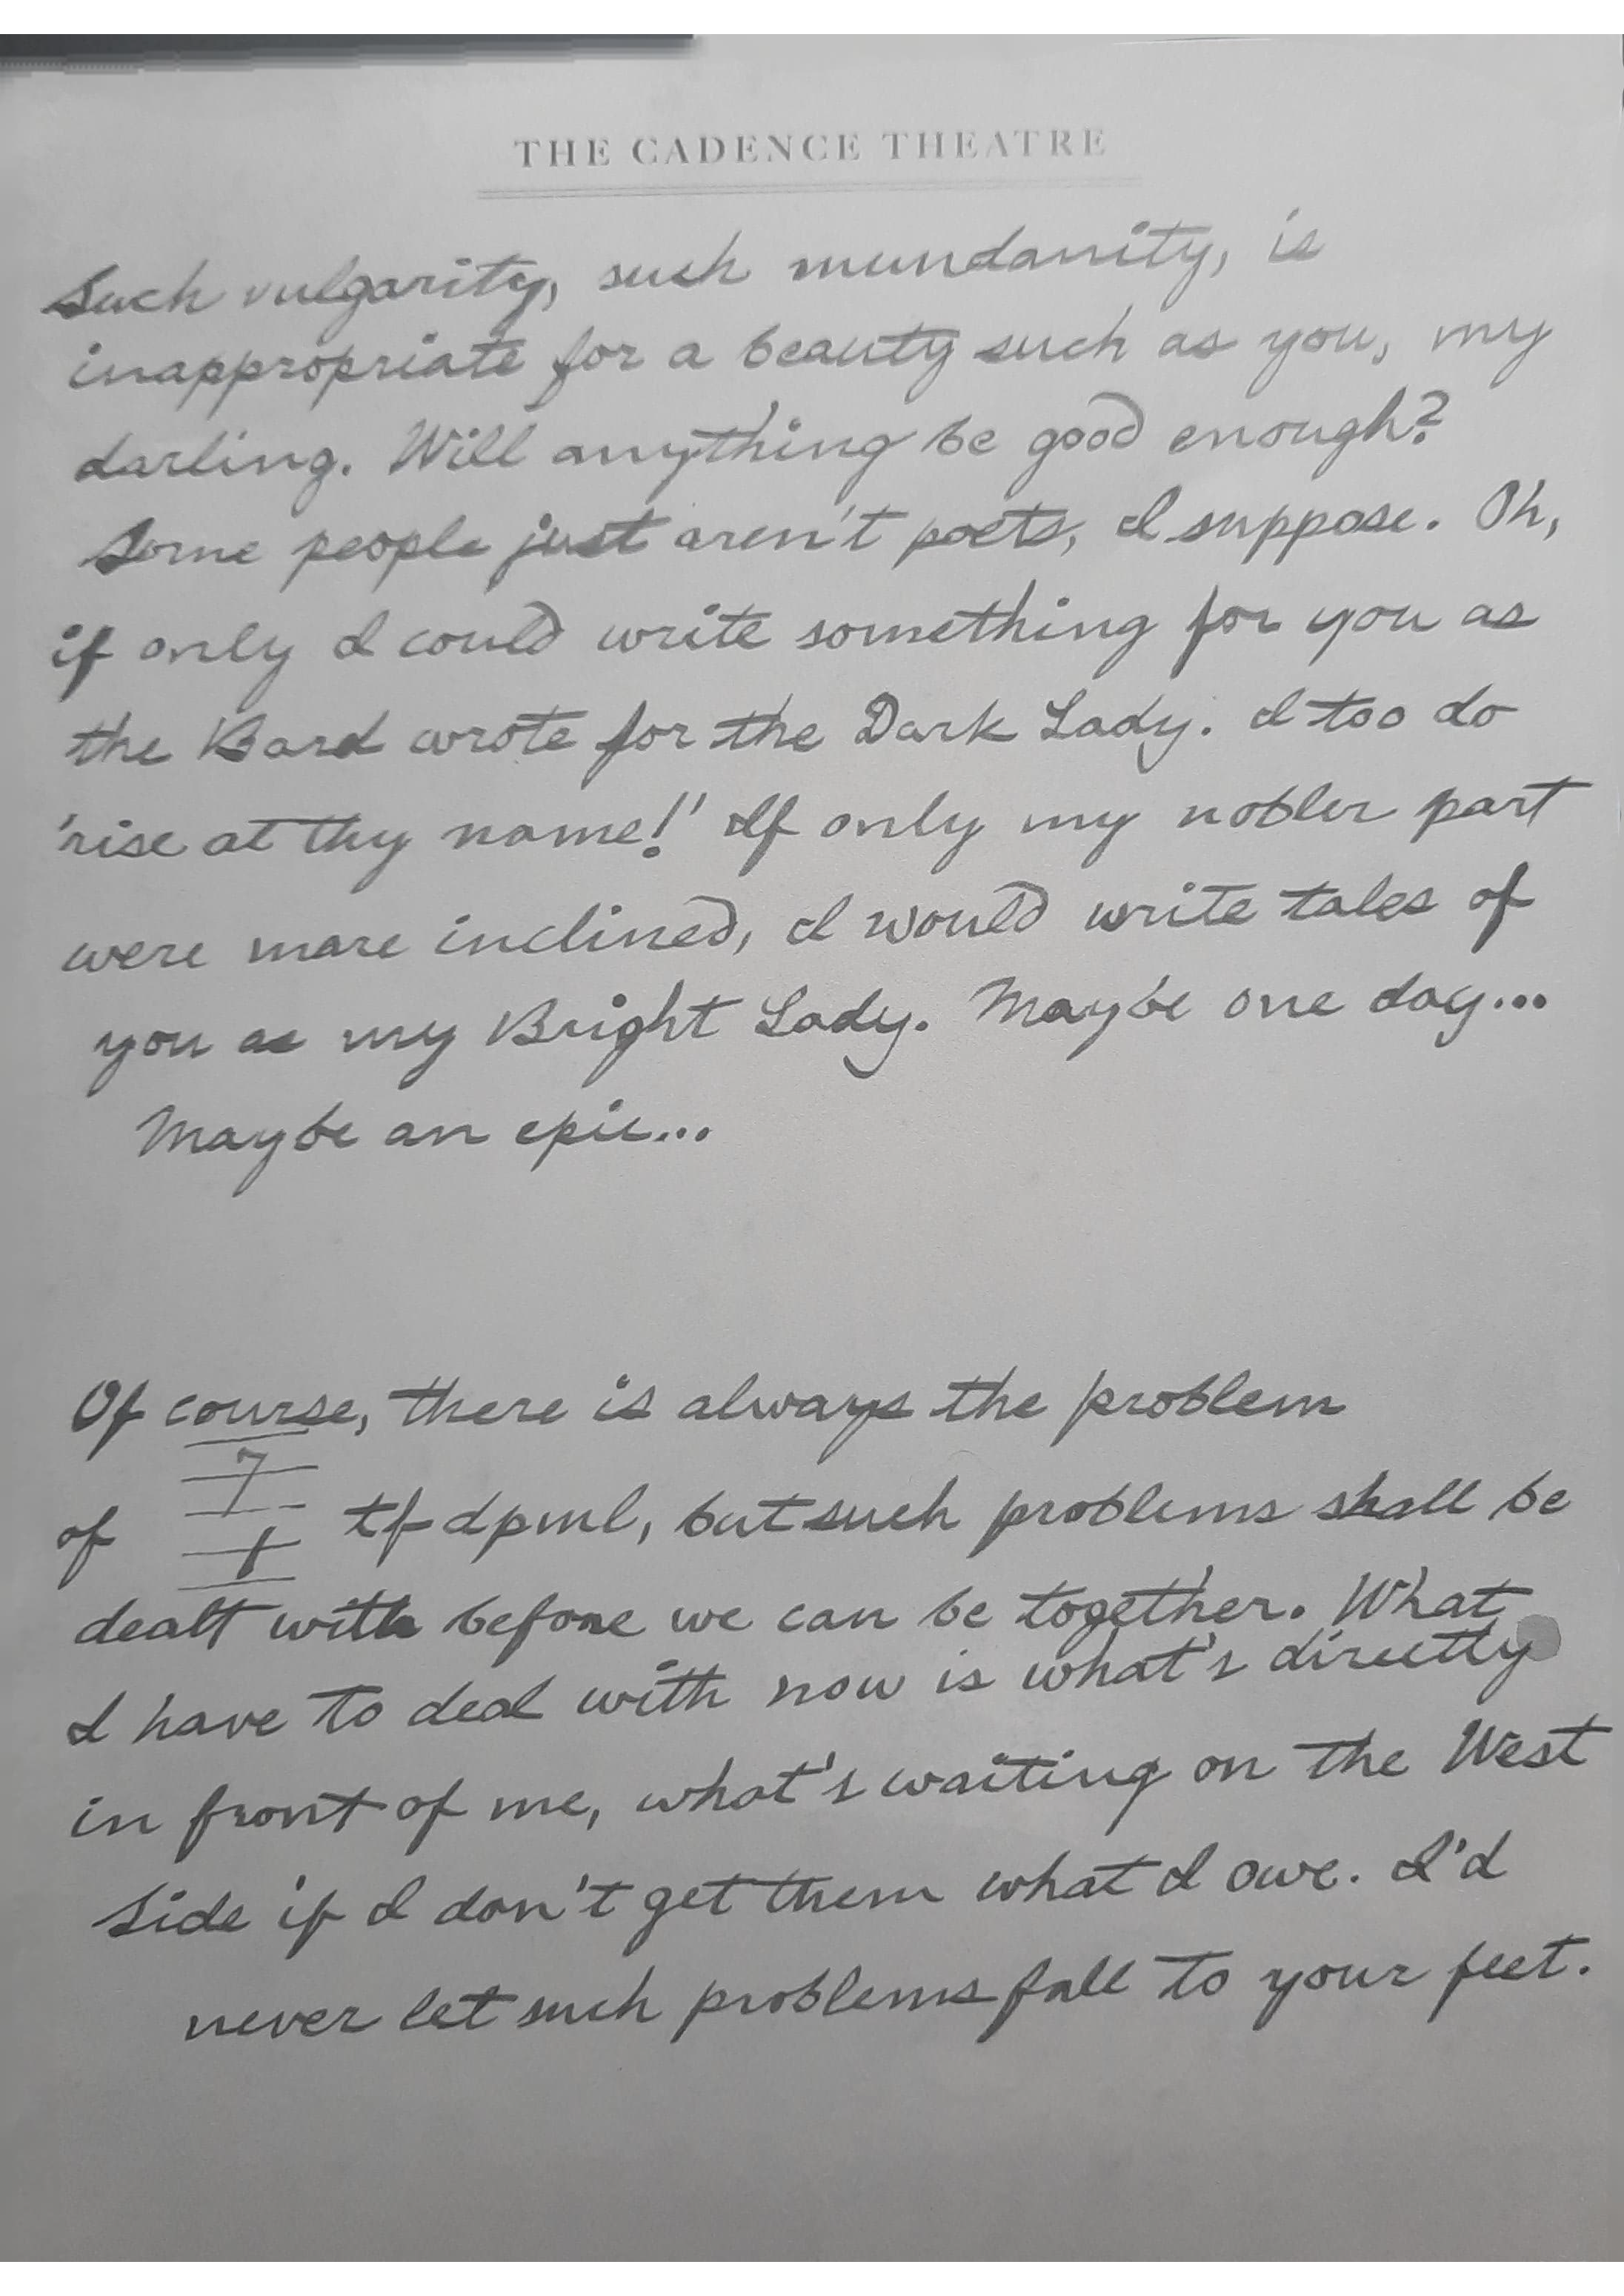 THE CADENCE THEATRE
Such vulgarity, such mundanity, is
inappropriate for a beauty such as you, my
darling. Will anything be good enough?
Some people just aren't poets, I suppose. Oh,
if only I could write something for you as
the Bard wrote for the Dark Lady. I too do
'rise at thy name!' If only my nobler part
were more inclined, I would write tales of
you as my Bright Lady. Maybe one day...
Maybe an epic...
Of course, there is always the problem
of tf dpml, but such problems shall be
dealt with before we can be together. What
I have to deal with now is what's directly
in front of me, what's waiting on the West
Side if I don't get them what I owe. I'd
never let such problems fall to your feet.